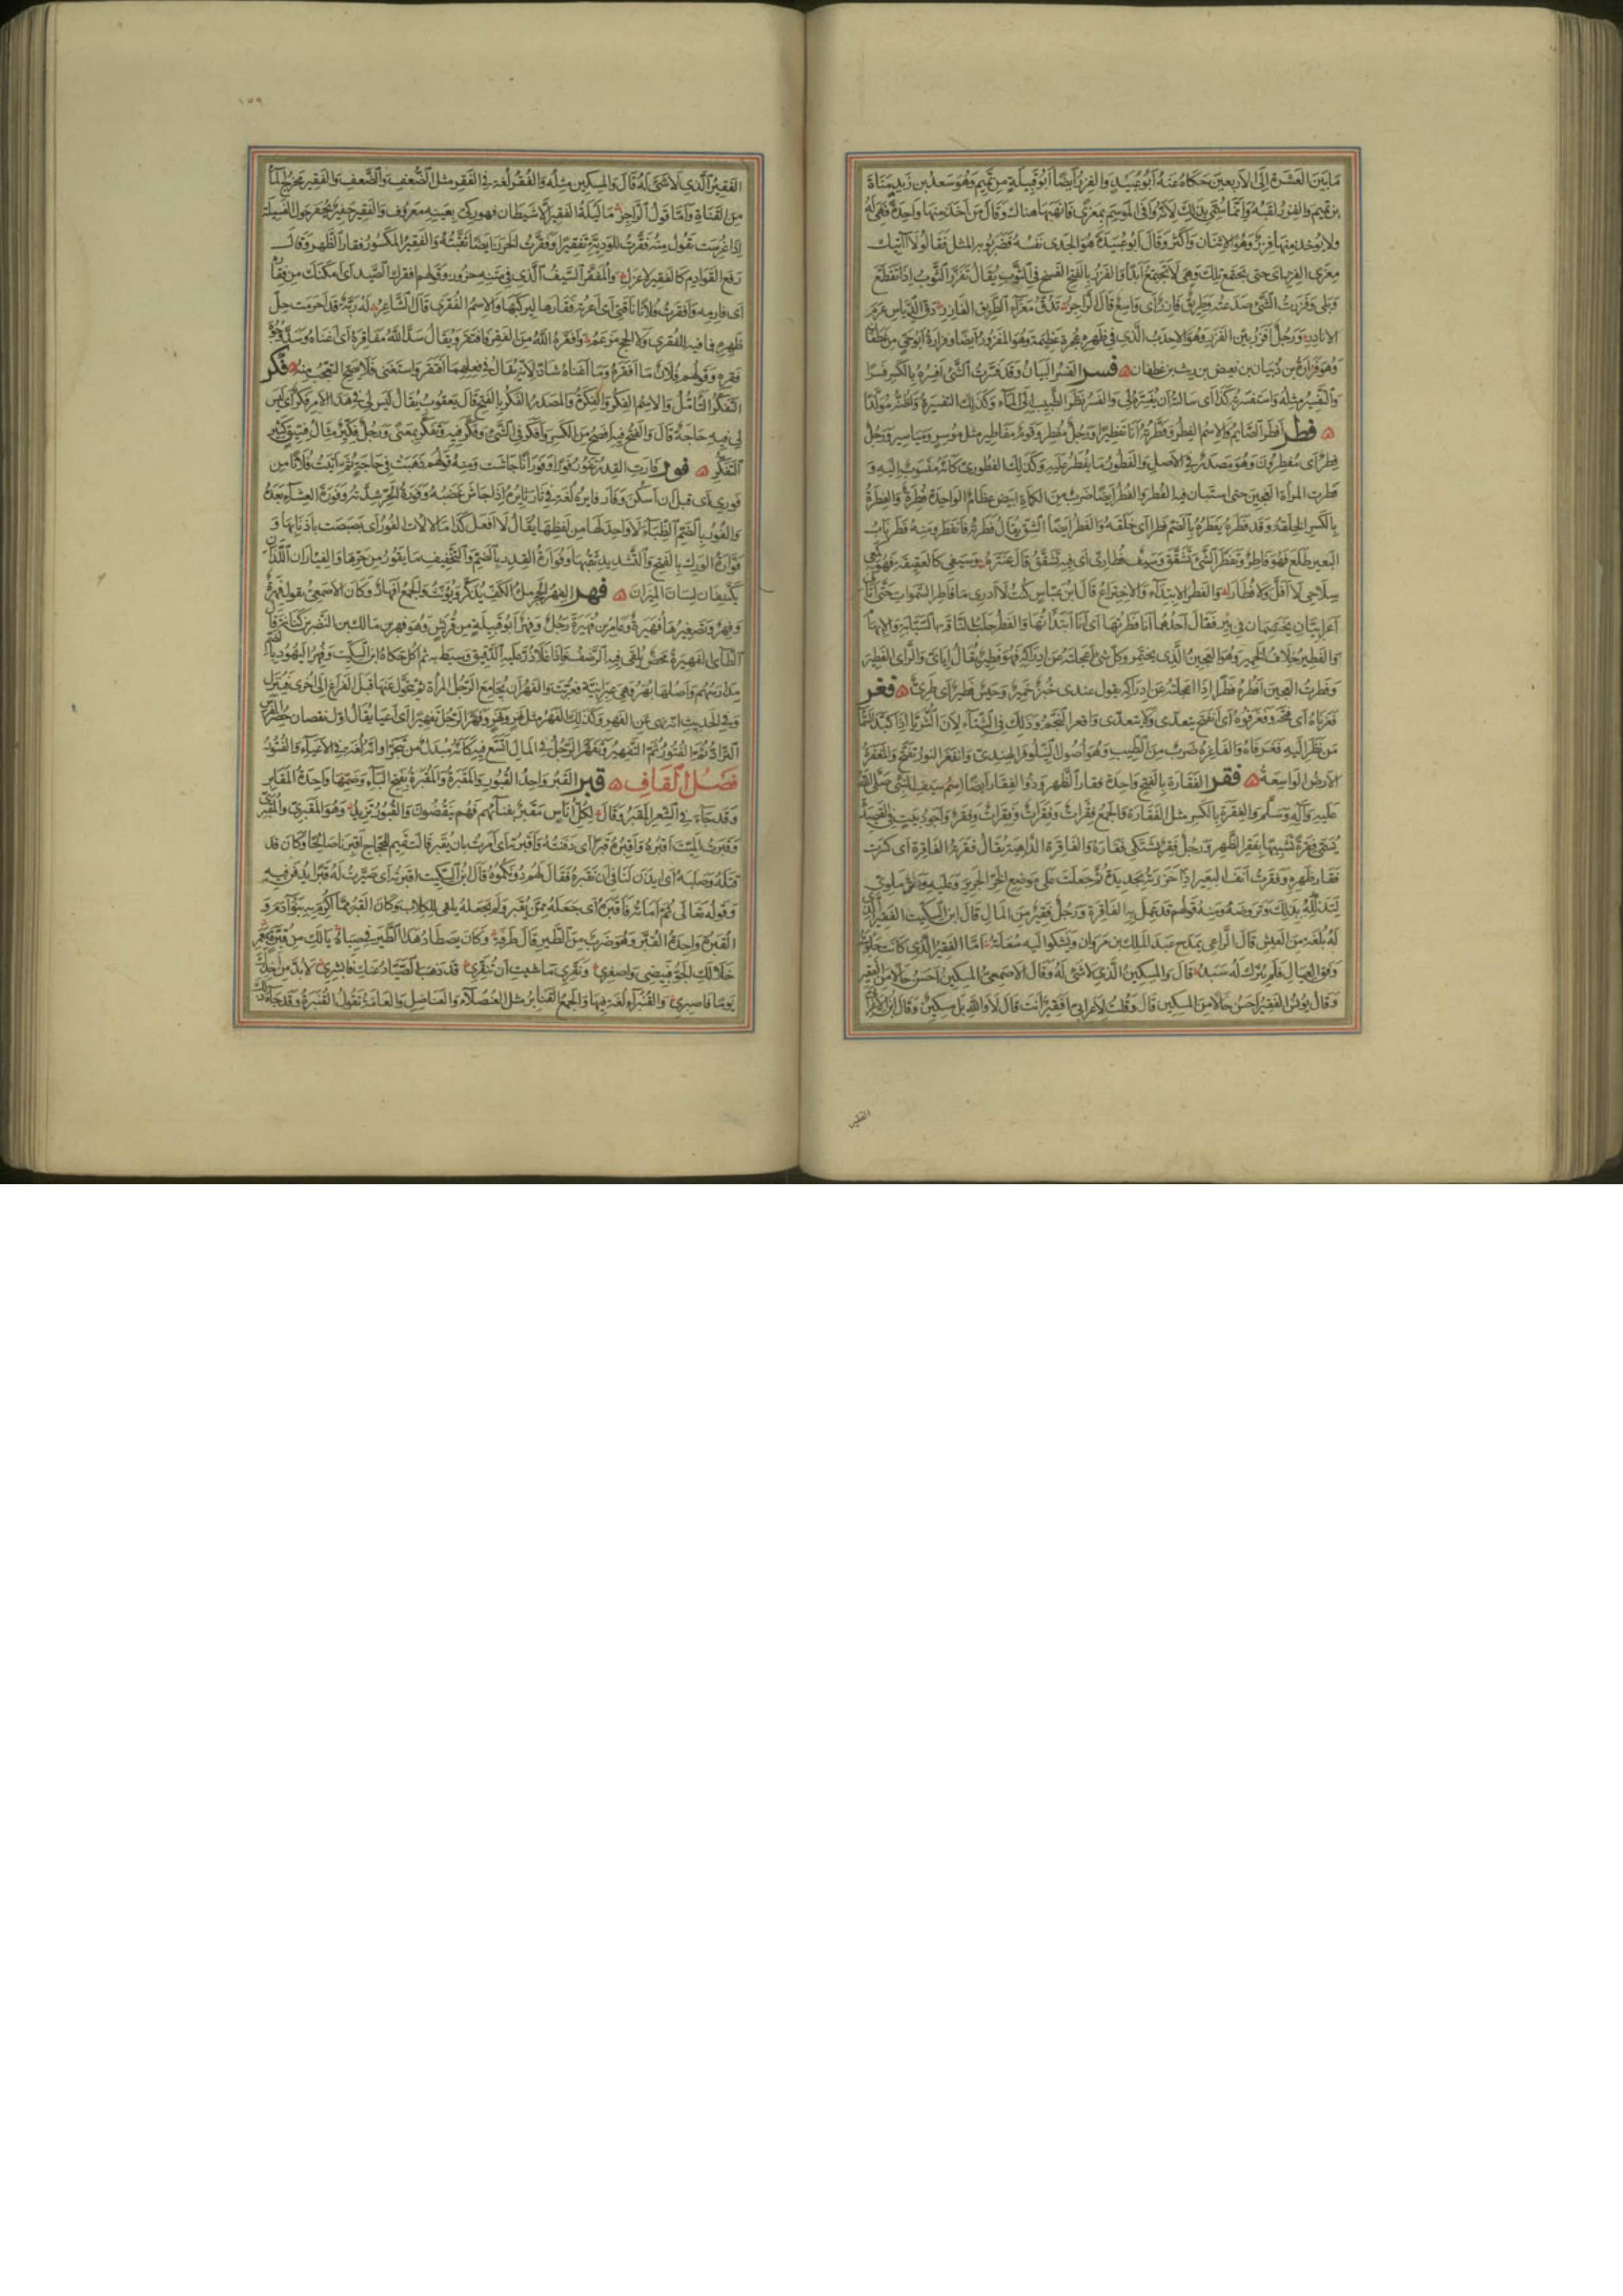 مَا بَيْنَ العَشَرَةِ إِلَى الأَرْبَعِينَ حَكَاهُ عَنْهُ أَبُو عُبَيْدٍ وَالفِزْرُ أَيْضًا أَبُو قَبِيلَةٍ مِنْ تَمِيمٍ وَهُوَ سَعْدُ بن زَيْدِ مَنَاةَ
بن تميم والفزر لقبه وانما سمى بذلك لانه وافى الموسم بمعزى فانهبها هناك وقال من اخذ منها واحدة فهى له
ولا يؤخذ منها فزر وهو الاثنان واكثر وقال ابو عبيدة هو الجدى نفسه فضربوا به المثل فقالوا لا آتيك
معزى الفزر اى حتى تجتمع تلك وهى لا تجتمع ابدا والفزر بالفتح الفسخ فى الثوب يقال تفزر الثوب اذا تقطع
وبلى وفزرت الشئ صدعته وطريق فازر اى واسع قال الراجز تدق معزاء الطريق الفازر دق الدياس عرم
الانادر ورجل افزر بين الفزر وهو الاحدب الذى فى ظهره عجرة عظيمة وهو المفزور ايضا وفزارة ابو حى من غطفان
وهو فزارة بن ذبيان بن بغيض بن ريث بن غطفان فسر الفسر البيان وقد فسرت الشئ افسره بالكسر فسرا
والتفسير مثله واستفسرته كذا اى سالته ان يفسره لى والفسر نظر الطبيب الى الماء وكذلك التفسرة واظنه مولدا
فطر افطر الصايم والاسم الفطر وفطرته انا تفطيرا ورجل مفطر وقوم مفاطير مثل موسر ومياسير ورجل
فطر اى مفطرون وهو مصدر فى الاصل والفطور ما يفطر عليه وكذلك الفطورى كانه منسوب اليه و
فطرت المراة العجين حتى استبان فيه الفطر والفطر ايضا ضرب من الكماة ابيض عظام الواحدة فطرة والفطرة
بالكسر الخلقة وقد فطره يفطره بالضم فطرا اى خلقه والفطر ايضا الشق يقال فطرته فانفطر ومنه فطر ناب
البعير طلع فهو فاطر وتفطر الشئ تشقق وسيف فطار اى فيه تشقق قال عنترة وسيفى كالعقيقة فهو كمعى
سلاحى لا افل ولا فطارا والفطر الابتداء والاختراع قال ابن عباس كنت لا ادرى ما فاطر السموات حتى اتانى
اعرابيان يختصمان فى بير فقال احدهما انا فطرتها اى انا ابتداتها والفطر حلب الناقة بالسبابة والابهام
والفطير خلاف الخمير وهو العجين الذى لم يختمر وكل شئ اعجلته عن ادراكه فهو فطير يقال اياى والراى الفطير
وفطرت العجين افطره فطرا اذا اعجلته عن ادراكه تقول عندى خبز خمير وحيس فطير اى طرى فغر
فغر فاه اى فتحه وفغر فوه اى انفتح يتعدى ولا يتعدى وافغر النجم وذلك فى الشتاء لان الثريا اذا كبد السماء
من نظر اليه فغر فاه والفاغرة ضرب من الطيب وهو اصول النيلوفر الهندى وانفغر النور تفتح والمفغرة
الارض الواسعة فقر الفقارة بالفتح واحدة فقار الظهر وذو الفقار ايضا اسم سيف النبى صلى الله
عليه وآله وسلم والفقرة بالكسر مثل الفقارة والجمع فقرات وفقرات وفقرات وفقر واجود بيت فى القصيدة
يسمى فقرة تشبيها بفقر الظهر ورجل فقر يشتكى فقاره والفاقرة الداهية يقال فقرته الفاقرة اى كسرت
فقار ظهره وفقرت انف البعير اذا حززته بحديدة ثم جعلت على موضع الحز الجرير وعليه وتر ملوى
لتذلله بذلك وتروضه ومنه قولهم قد عمل به الفاقرة ورجل فقير من المال قال ابن السكيت الفقير الذى
له بلغة من العيش قال الراعى يمدح عبد الملك بن مروان ويشكو اليه سعاته اما الفقير الذى كانت حلوبته
وفق العيال فلم يترك له سبد قال والمسكين الذى لا شئ له وقال الاصمعى المسكين احسن حالا من الفقير
وقال يونس الفقير احسن حالا من المسكين قال وقلت لاعرابى افقير انت قال لا والله بل مسكين وقال ابن الاعرابى
الفقير
١٥٩
الفقير الذى لا شئ له قال والمسكين مثله والفقر لغة فى الفقر مثل الضعف والضعف والفقير مخرج الماء
من القناة واما قول الراجز ما ليلة الفقير الا شيطان فهو ركى بعينه معروف والفقير حفير يحفر حول الفسيلة
اذا غرست تقول منه فقرت للودية تفقيرا وفقرت الخرز ايضا ثقبته والفقير المكسور فقار الظهر وقال
رفع القوادم كالفقير الاعزل والمفقر السيف الذى فى متنه حزوز وقولهم افقرك الصيد اى امكنك من فقاره
اى فارمه وافقرت فلانا ناقتى اى اعرته فقارها ليركبها والاسم الفقرى قال الشاعر له ربة قد احرمت حل
ظهره فما فيه للفقرى ولا الحج مزعم وافقره الله من الفقر فافتقر ويقال سد الله مفاقره اى اغناه وسد وجوه
فقره وقولهم فلان ما افقره وما اغناه شاذ لانه يقال فى فعليهما افتقر واستغنى فلا يصح التعجب منه فكر
التفكر التامل والاسم الفكر والفكرة والمصدر الفكر بالفتح قال يعقوب يقال ليس لى فى هذا الامر فكر اى ليس
لى فيه حاجة قال والفتح فيه افصح من الكسر وافكر فى الشئ وفكر فيه وتفكر بمعنى ورجل فكير مثال فسيق كثير
التفكر فور فارت القدر تفور فورا وفورانا جاشت ومنه قولهم ذهبت فى حاجة ثم اتيت فلانا من
فورى اى قبل ان اسكن وفار فايره لغة فى ثار ثايره اذا جاش غضبه وفورة الحر شدته وفورة العشاء بعده
والفور بالضم الظباء لا واحد لها من لفظها يقال لا افعل كذا ما لالات الفور اى بصبصت باذنابها و
فوارة الورك بالفتح والتشديد ثقبها وفوارة القدر بالضم والتخفيف ما يفور من حرها والفياران اللذان
يكتنفان لسان الميزان فهر الفهر الحجر ملء الكف يذكر ويؤنث والجمع افهار وكان الاصمعى يقول فهرة
وفهر وتصغيرها فهيرة وعامر بن فهيرة رجل وفهر ابو قبيلة من قريش وهو فهر بن مالك بن النضر بن كنانة قال
الطائى الفهيرة محض يلقى فيه الرضف فاذا غلا ذر عليه الدقيق وسيط به ثم اكل حكاه ابن السكيت وفهر اليهود بالضم
مدارسهم واصلها بهر وهى عبرانية فعربت والفهر ان يجامع الرجل المراة ثم يتحول عنها قبل الفراغ الى اخرى فينزل
وفى الحديث انه نهى عن الفهر وكذلك الفهر مثل نهر ونهر وفهر الرجل تفهيرا اى اعيا يقال اول نقصان حضر الفرس
التراد ثم الفتور ثم التفهير وتفهر الرجل فى المال اتسع فيه كانه مبدل من تبحر او انه لغة فى الاعياء والفتور
فصل القاف قبر القبر واحد القبور والمقبرة والمقبرة بفتح الباء وضمها واحدة المقابر
وقد جاء فى الشعر المقبر وقال لكل اناس مقبر بفنائهم فهم ينقصون والقبور تزيد وهو المقبرى والمقبرى
وقبرت الميت اقبره واقبره قبرا اى دفنته واقبرته اى امرت بان يقبر قالت تميم للحجاج اقبرنا صالحا وكان قد
قتله وصلبه اى ايذن لنا فى ان نقبره فقال لهم دونكموه قال ابن السكيت اقبرته اى صيرت له قبرا يدفن فيه
وقوله تعالى ثم اماته فاقبره اى جعله ممن يقبر ولم يجعله يلقى للكلاب وكان القبر مما اكرم به بنو آدم و
القبرة واحدة القبر وهو ضرب من الطير قال طرفة وكان يصطاد هذا الطير فى صباه يا لك من قبرة بمعمر
خلا لك الجو فبيضى واصفرى ونقرى ما شيت ان تنقرى قد ذهب الصياد عنك فابشرى لا بد من اخذك
يوما فاصبرى والقنبراء لغة فيها والجمع القنابر مثل العنصلاء والعناصل والعامة تقول القنبرة وقد جاء ذلك